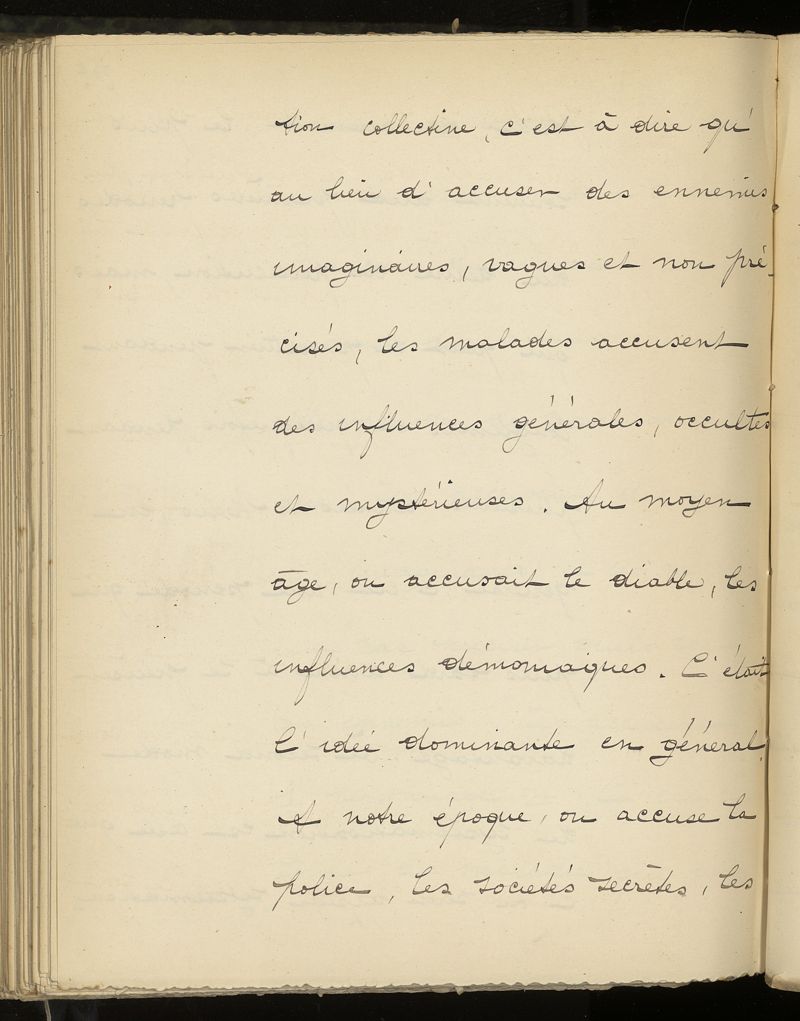 tion collective, c'est à dire qu'
au lieu d'accuser des ennemis
imaginaires, vagues et non pré-
cisés, les malades accusent
des influences générales, occultes
et mystérieuses. Au moyen
âge, on accusait le diable, les
influences démoniaques. C'était
l'idée dominante en général.
A notre époque, on accuse la
police, les sociétés secrètes, les